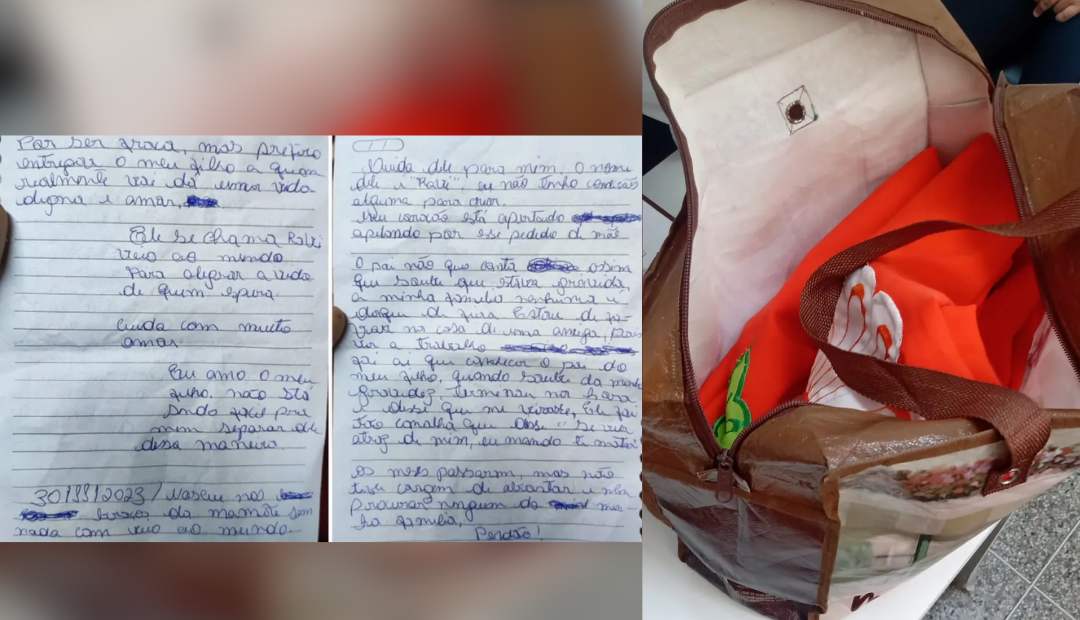 Por ser fraca, mas prefiro
entregar o meu filho a quem
realmente vai da uma vida
digna e amar,
Ele se chama Ravi
veio ao mundo
Para alegrar a vida
de quem espera
Cuida com muito
amor
Eu amo o meu
filho, não stá
sendo facil para
mim separar de
dessa maneira.
30/11/2023/ Nasceu nos
braços da mamãe sem
nada com veio ao mundo
Cuida dele para mim, o nome
dele e "Ravi", eu não tenho condição
alguma para criar.
Meu coração está apertado
apelando por esse pedido de mãe
O pai não que conta assim
que soube que estava gravida,
a minha familia nenhuma e
daqui de fora Estou de fa-
var na casa de uma amiga,
vir a trabalho
foi ai que conheceu o pai do
meu filho, quando soube da minha
gravidez, terminou na hora
e disse que me virasse, Ele foi
tão canalha que disse " Se vir
atraz de mim, eu mando ti matar
os meses passaram, mas não
tive corgem de abortar e nem
procurar ninguem da mi-
ha familia,
Perdão!